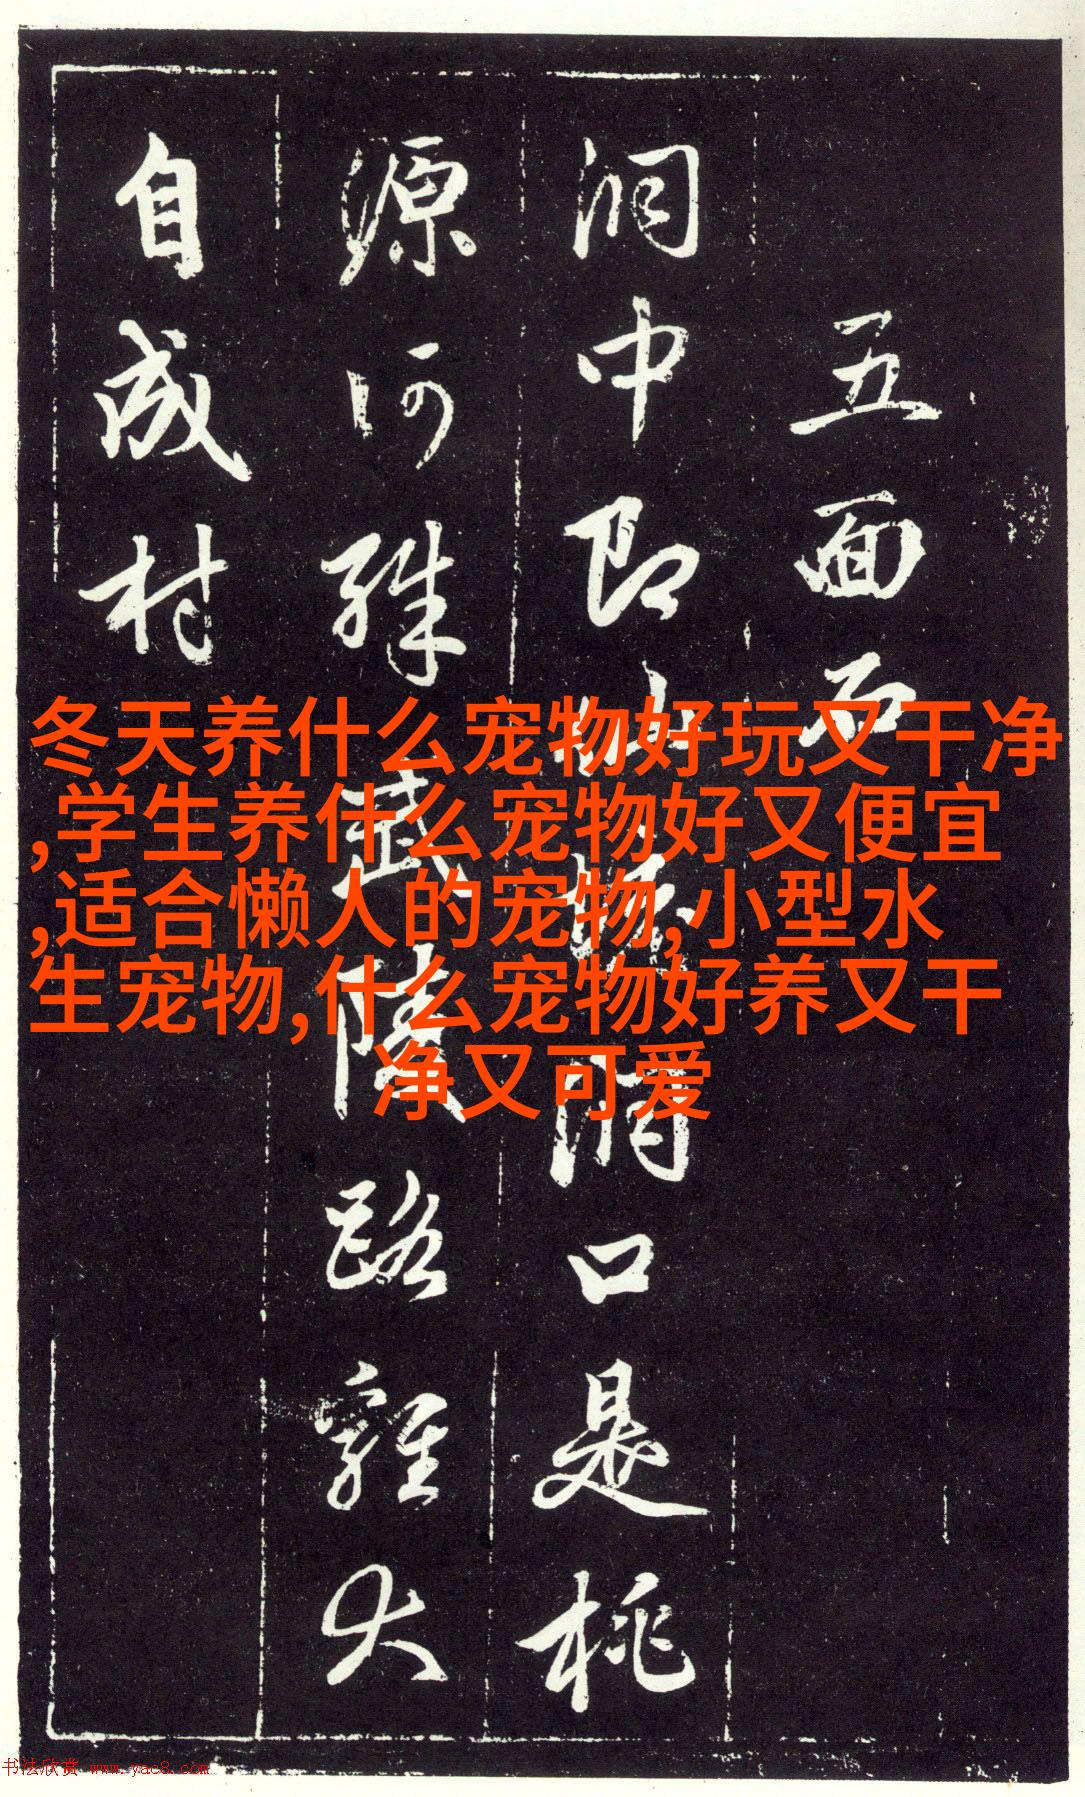 五面石
洞中即仙境洞口是桃
源何殊武陵路雞犬
自成村
冬天养什么宠物好玩又干净
,学生养什么宠物好又便宜
,适合懒人的宠物,小型水
生宠物,什么宠物好养又干
净又可爱
书法欣赏 www.yac8.com